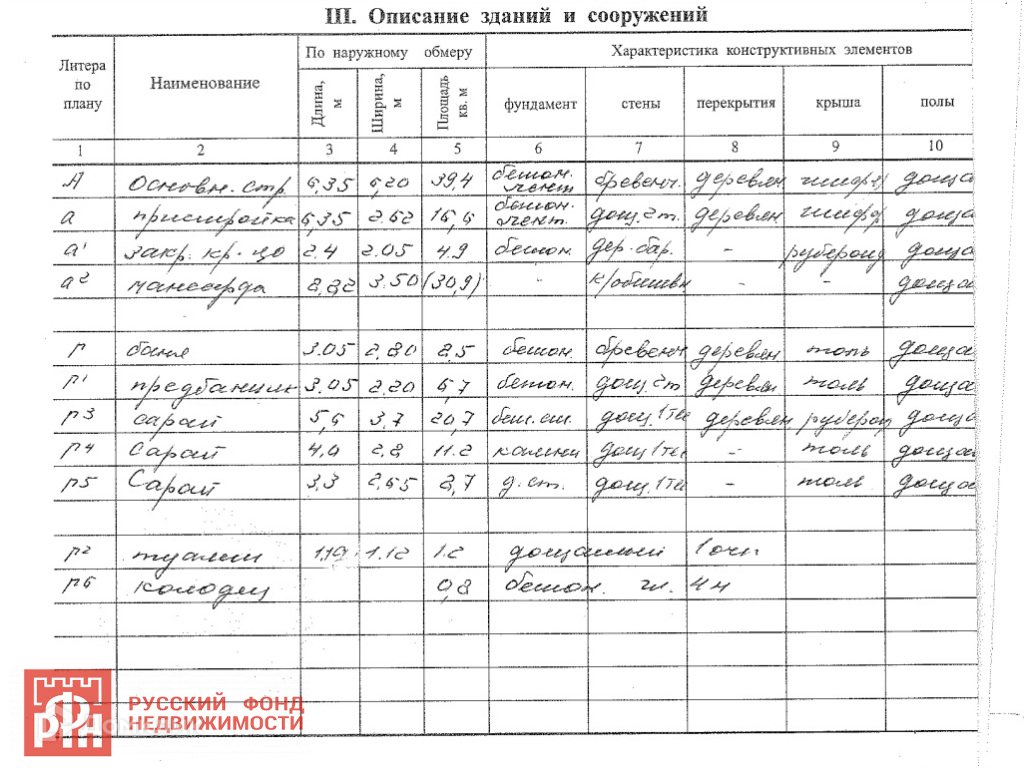 III. Описание зданий и сооружений
Литера по плану Наименование По наружному обмеру Характеристика конструктивных элементов
Длина, м Ширина, м Площадь кв. м фундамент стены перекрытия крыша полы
1 2 3 4 5 6 7 8 9 10
А Основн. стр. 6,35 6,20 39,4 бетон. лент бревенч. деревян шифер доща
а пристройка 6,35 2.62 16,6 бетон. лент. дощ. 2т. деревян шифер доща
а¹ закр. кр-цо 2.4 2.05 4.9 бетон дер. бар. - рубероид доща
а² мансарда 8,82 3.50 (30,9) - к/обшивн - - доща
Г баня 3.05 2,80 8,5 бетон. бревенч деревян толь доща
Г¹ предбанник 3.05 2.20 6,7 бетон. дощ. 2т деревян толь доща
Г3 сарай 5,6 3,7 20,7 бет. ст. дощ. 1те деревян рубероид доща
Г4 Сарай 4,0 2,8 11.2 камни дощ 1те - толь доща
Г5 Сарай 3,3 2,65 8,7 д. ст. дощ. 1те - толь доща
Г2 туалет 1.12 1.2 дощатый 1 очк
Г6 колодец 0,8 бетон. гл. 4м
РФН
РУССКИЙ ФОНД
НЕДВИЖИМОСТИ